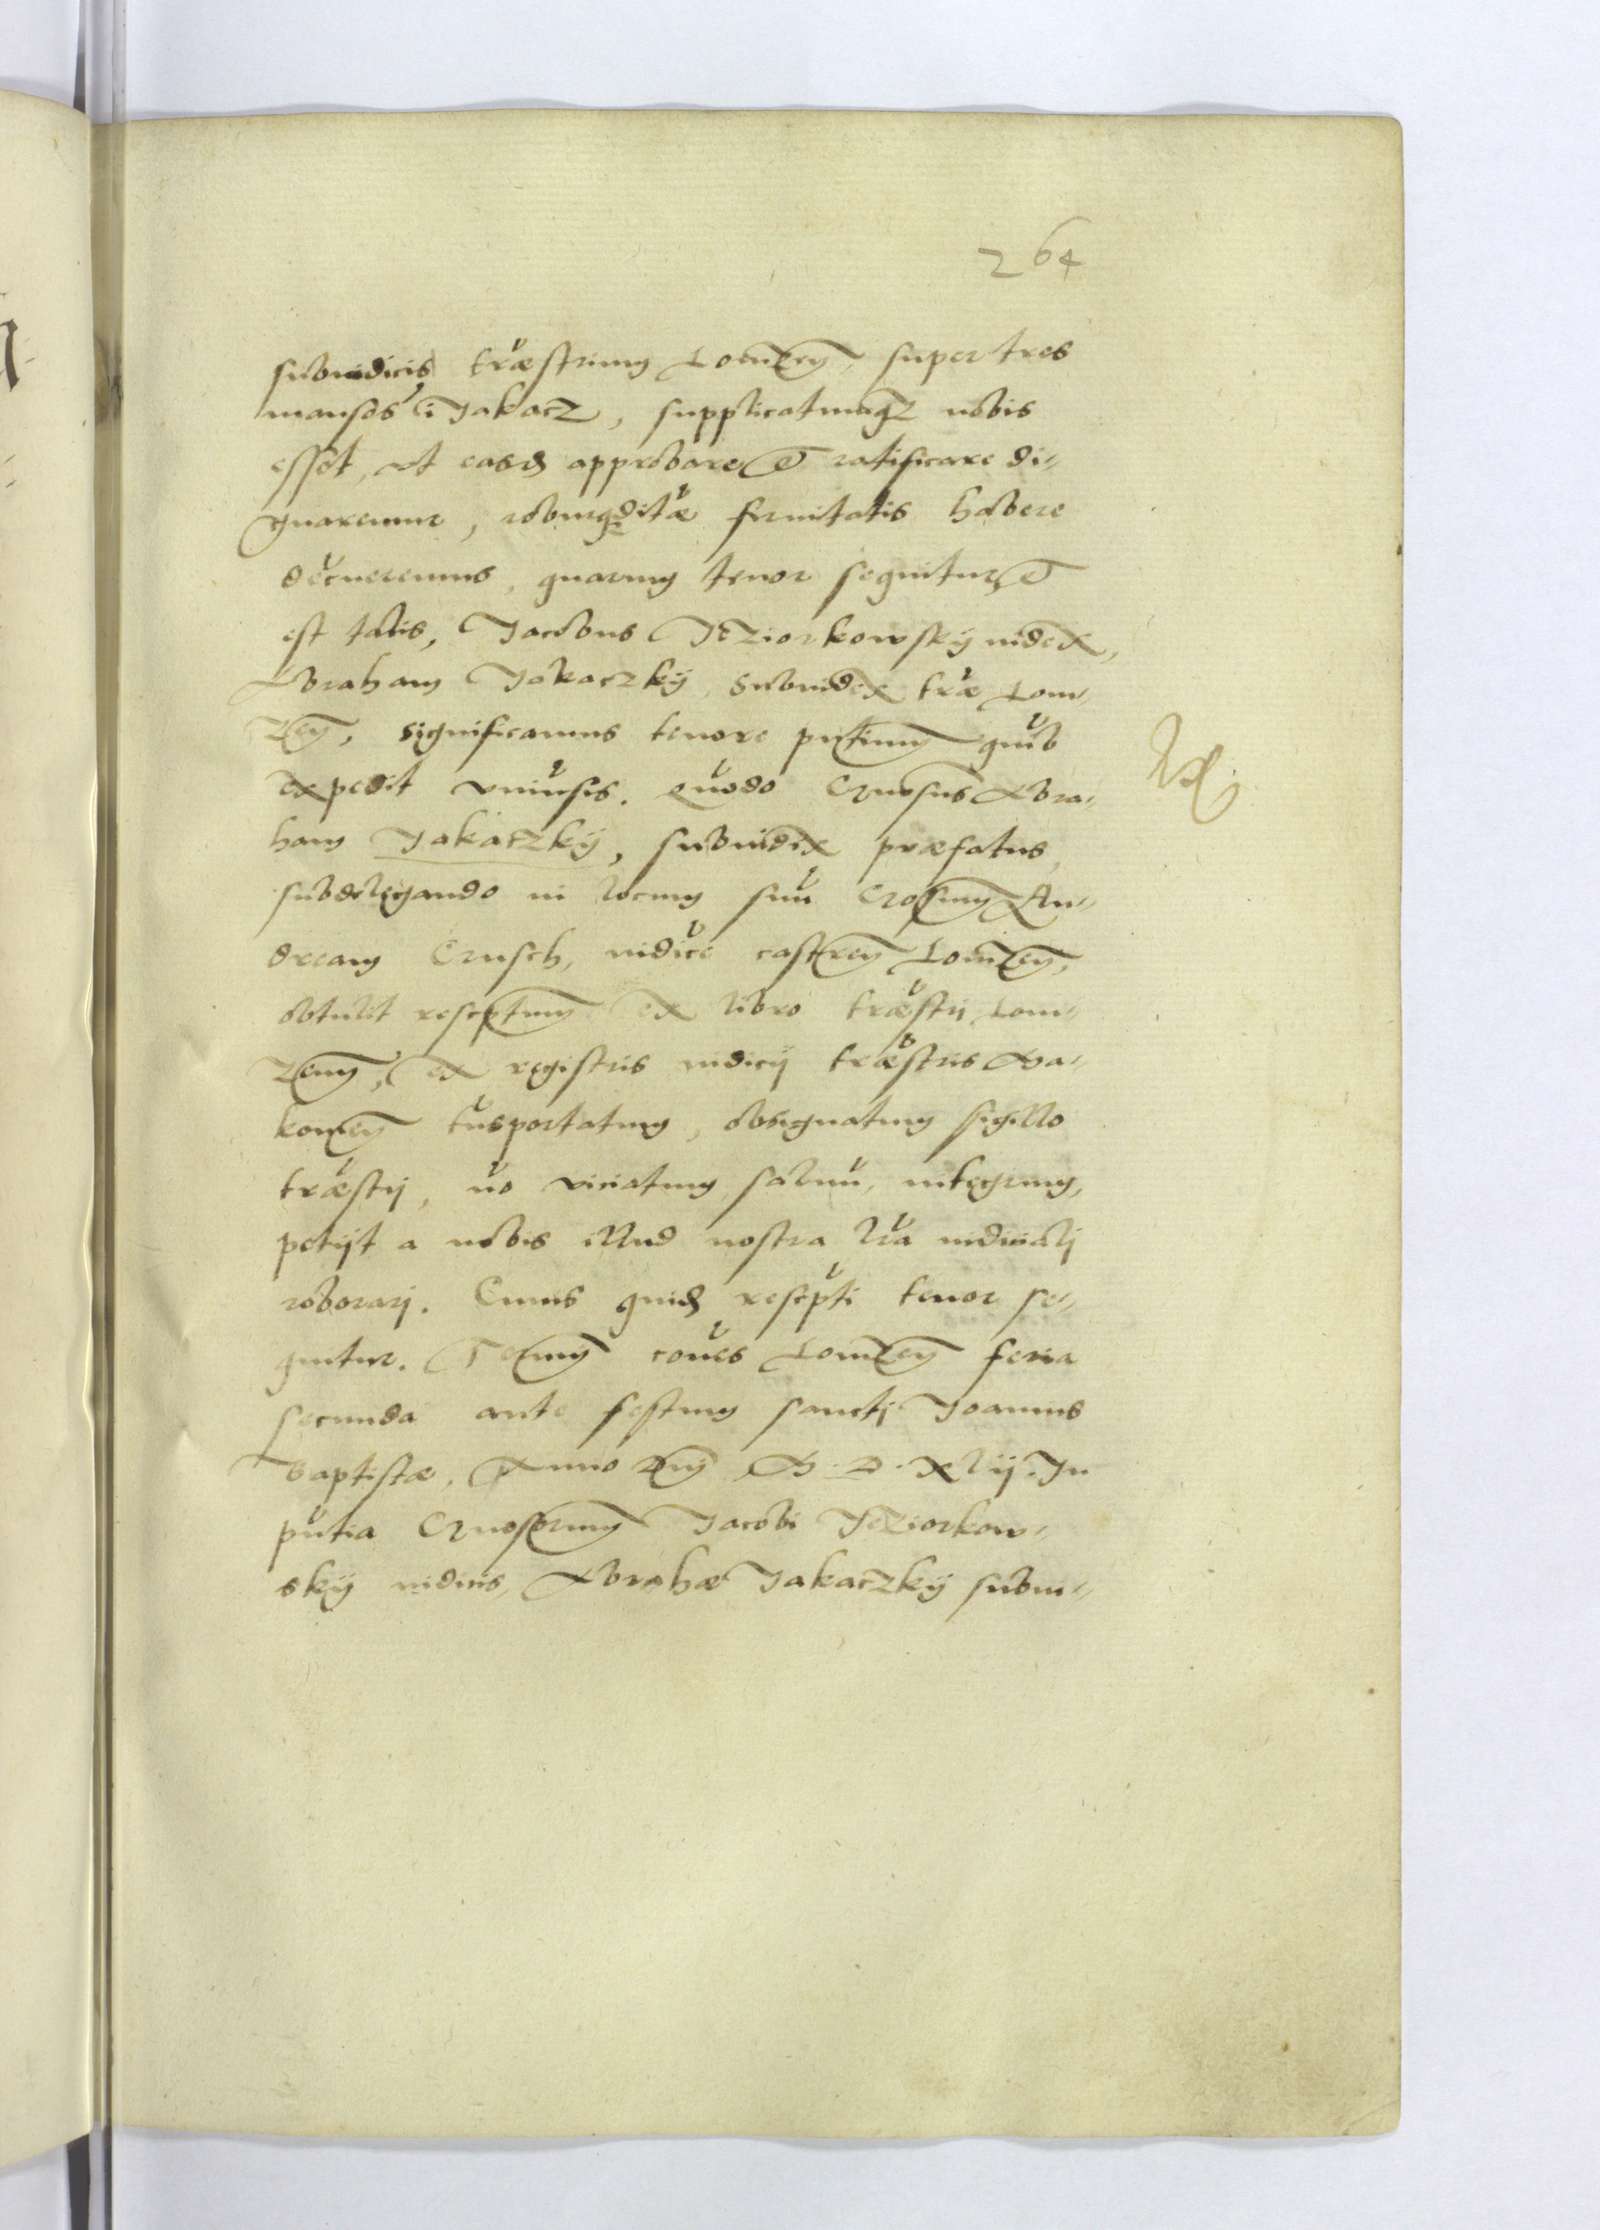 264
subiudicis træstrium Lomzen, super tres
mansos i Jakacz, supplicatumq3 nobis
esset, vt easd approbare et ratificare di-
gnaremur, roburq3 ditæ firmitatis habere
decneremus, quarum tenor sequitur et
est talis, Jacobus Jeziorkowskÿ iudex,
Abraham Jakaczkÿ, Subiudex træ Lom-
zen, significamus tenore pntium quib
expedit vniusis. Quodo Gnosus Abra-
ham Jakaczkÿ, subiudex præfatus,
subdelegando in locum suu Grosum An-
dream Crusch, iudice castren Lomzen,
obtulit rescptum ex libro træstri Lom-
zen, ex registris iudicij træstris Wa-
kowen tnsportatum, obsignatum sigillo
træstrj, no viciatum, saluu, integrum,
petijt a nobis illud nostra lra iudicialj
roborarj. Cuius quid rescpti tenor se-
quitur. Termi coues Lomzen feria
secunda ante festum sanctj Joannis
Baptistæ, Anno Dnj M. D. XLij. In
pntia Gnosorum Jacobi Jeziorkow-
skÿ iudicis, Abrahæ Jakaczkÿ subiu-